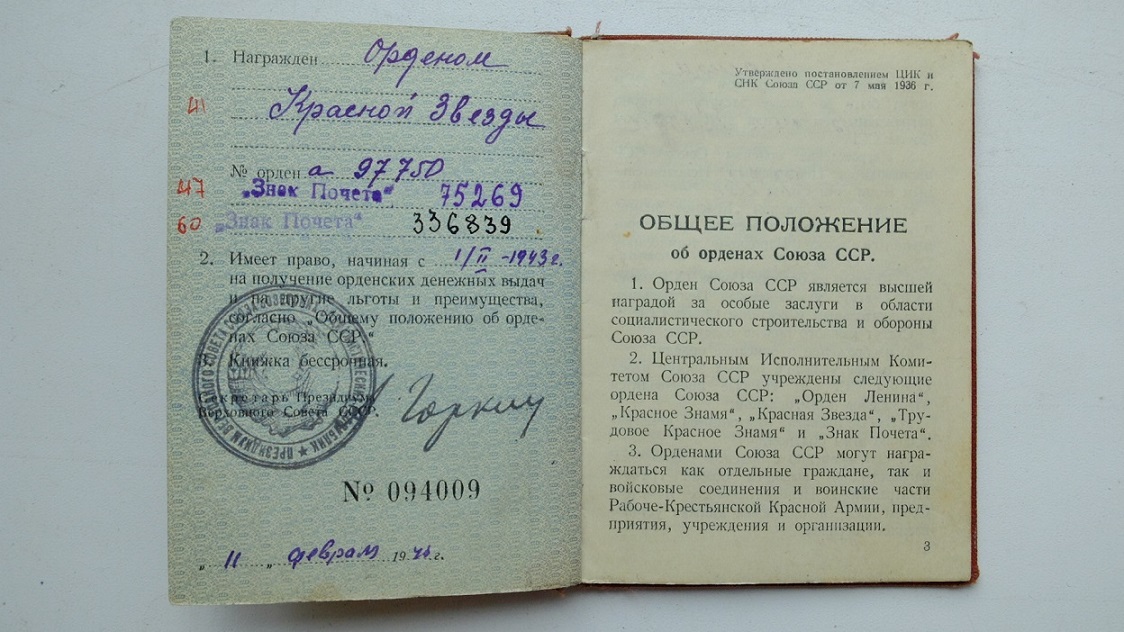 1. Награжден Орденом
41
Красной Звезды
№ орден а 97750
47 „Знак Почета“ 75269
60 „Знак Почета“ 336839
2. Имеет право, начиная с 1/II - 1943 г.
на получение орденских денежных выдач
и на другие льготы и преимущества,
согласно „Общему положению об орде-
нах Союза ССР“
3. Книжка бессрочная.
Секретарь Президиума
Верховного Совета СССР.
Горкин
№ 094009
„ 11 „ февраля 19 г.
Утверждено постановлением ЦИК и
СНК Союза ССР от 7 мая 1936 г.
ОБЩЕЕ ПОЛОЖЕНИЕ
об орденах Союза ССР.
1. Орден Союза ССР является высшей
наградой за особые заслуги в области
социалистического строительства и обороны
Союза ССР.
2. Центральным Исполнительным Коми-
тетом Союза ССР учреждены следующие
ордена Союза ССР: „Орден Ленина“,
„Красное Знамя“, „Красная Звезда“, „Тру-
довое Красное Знамя“ и „Знак Почета“.
3. Орденами Союза ССР могут награ-
ждаться как отдельные граждане, так и
войсковые соединения и воинские части
Рабоче-Крестьянской Красной Армии, пред-
приятия, учреждения и организации.
3